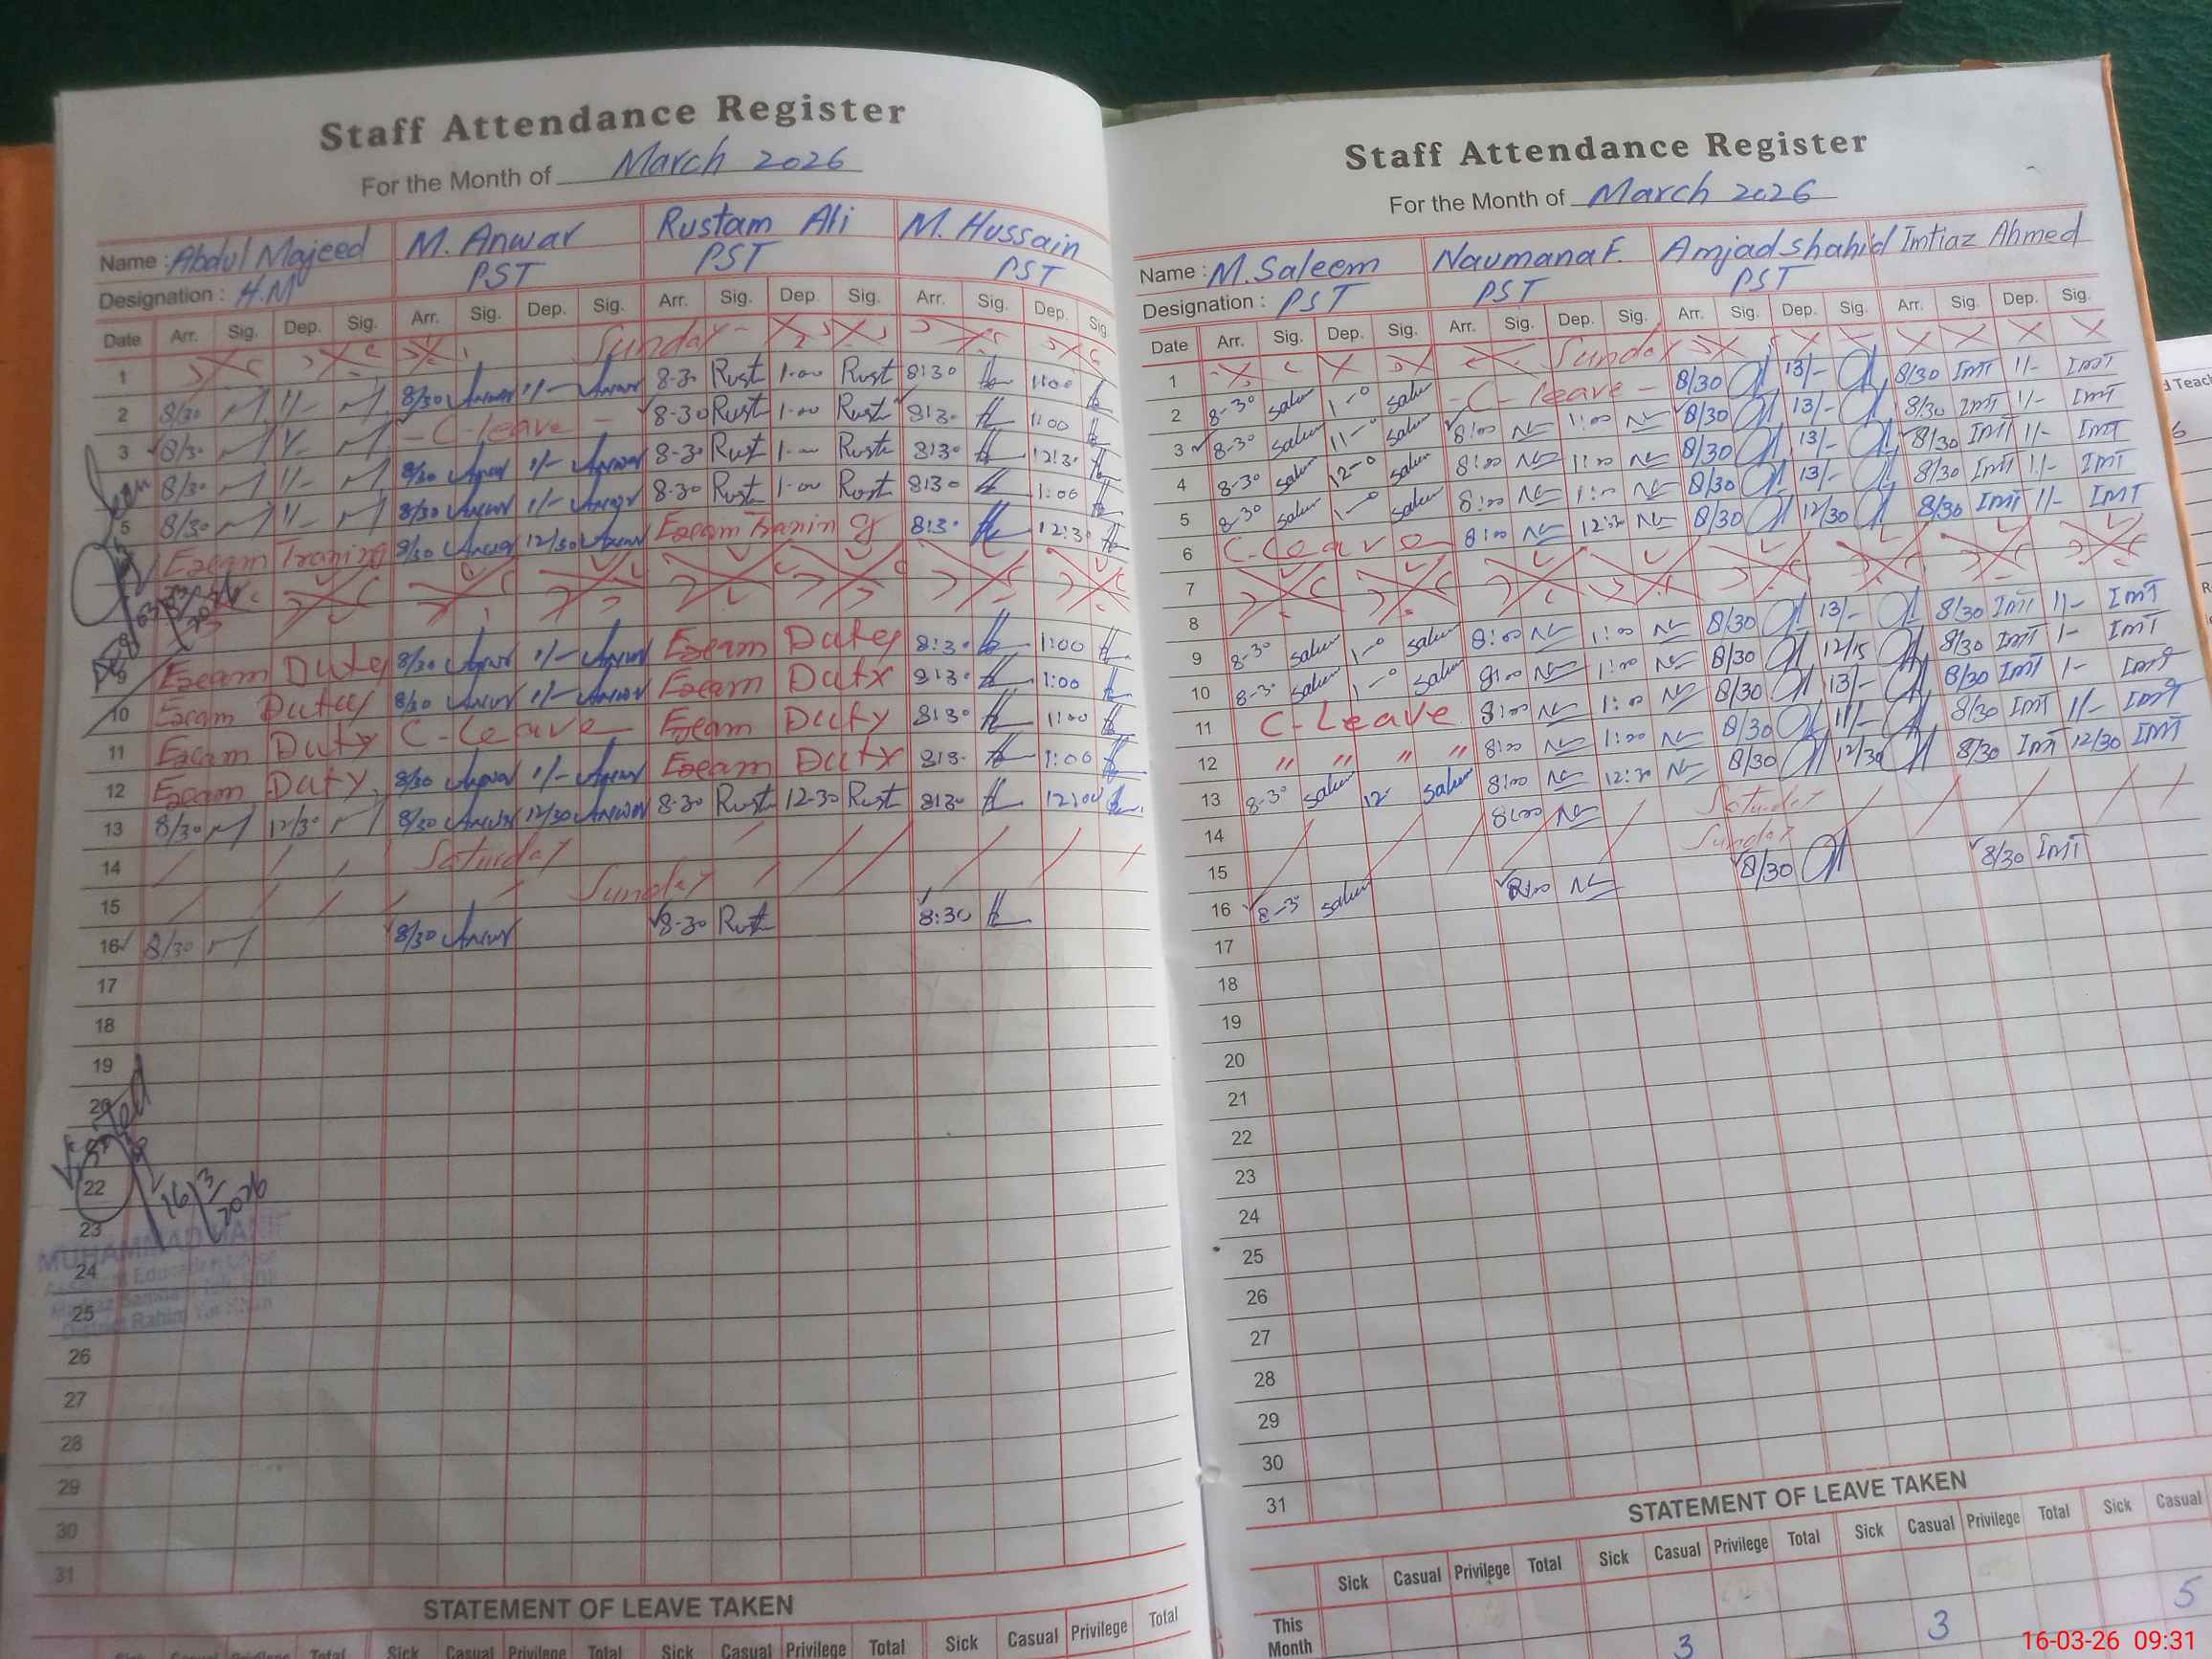 Staff Attendance Register
For the Month of March 2026
Name : Abdul Majeed M. Anwar Rustam Ali M. Hussain
Designation : H.M PST PST PST
Date Arr. Sig. Dep. Sig. Arr. Sig. Dep. Sig. Arr. Sig. Dep. Sig. Arr. Sig. Dep. Sig.
1 Sunday
2 8/30 1/- 8/30 Anwar 1/- Anwar 8-30 Rust 1-00 Rust 8:30 1:00
3 8/30 1/- -C-leave- 8-30 Rust 1-00 Rust 8:30 1:00
4 8/30 1/- 8/30 Anwar 1/- Anwar 8-30 Rust 1-00 Rust 8:30 12:30
5 8/30 1/- 8/30 Anwar 1/- Anwar 8-30 Rust 1-00 Rust 8:30 1:00
Exam Training 8/30 Anwar 12/30 Anwar Exam Training 8:30 12:30
Exam Duty 8/30 Anwar 1/- Anwar Exam Duty 8:30 1:00
10 Exam Duty 8/30 Anwar 1/- Anwar Exam Duty 8:30 1:00
11 Exam Duty C-Leave- Exam Duty 8:30 1:00
12 Exam Duty 8/30 Anwar 1/- Anwar Exam Duty 8:30 1:00
13 8/30 12/30 8/30 Anwar 12/30 Anwar 8-30 Rust 12-30 Rust 8:30 12:00
14 Saturday
15 Sunday
16 8/30 8/30 Anwar 8-30 Rust 8:30
17
18
19
20
Visited
22
16/3/2026
23
MUHAMMAD
24
Assistant Education
25
District Rahim Yar Khan
26
27
28
29
30
31
STATEMENT OF LEAVE TAKEN
Sick Casual Privilege Total Sick Casual Privilege Total Sick Casual Privilege Total
Staff Attendance Register
For the Month of March 2026
Name : M. Saleem Naumana F. Amjad Shahid Imtiaz Ahmed
Designation : PST PST PST
Date Arr. Sig. Dep. Sig. Arr. Sig. Dep. Sig. Arr. Sig. Dep. Sig. Arr. Sig. Dep. Sig.
1 Sunday
2 8-30 Salem 1-0 Salem -C-leave- 8/30 13/- 8/30 IMT 1/- IMT
3 8-30 Salem 11-0 Salem 8:00 1:00 8/30 13/- 8/30 IMT 1/- IMT
4 8-30 Salem 12-0 Salem 8:00 1:00 8/30 13/- 8/30 IMT 1/- IMT
5 8-30 Salem 1-0 Salem 8:00 1:00 8/30 13/- 8/30 IMT 1/- IMT
6 C-Leave 8:00 12:30 8/30 12/30 8/30 IMT 1/- IMT
7
8
9 8-30 Salem 1-0 Salem 8:00 1:00 8/30 13/- 8/30 IMT 1/- IMT
10 8-30 Salem 1-0 Salem 8:00 1:00 8/30 12/15 8/30 IMT 1- IMT
11 C-Leave 8:00 1:00 8/30 13/- 8/30 IMT 1- IMT
12 " " " " 8:00 1:00 8/30 11/- 8/30 IMT 1/- IMT
13 8-30 Salem 12 Salem 8:00 12:30 8/30 12/30 8/30 IMT 12/30 IMT
14 8:00 Saturday
15 Sunday
16 8-30 Salem 8:00 8/30 8/30 IMT
17
18
19
20
21
22
23
24
25
26
27
28
29
30
31
STATEMENT OF LEAVE TAKEN
Sick Casual Privilege Total Sick Casual Privilege Total Sick Casual Privilege Total Sick Casual
This Month 3 3 5
16-03-26 09:31